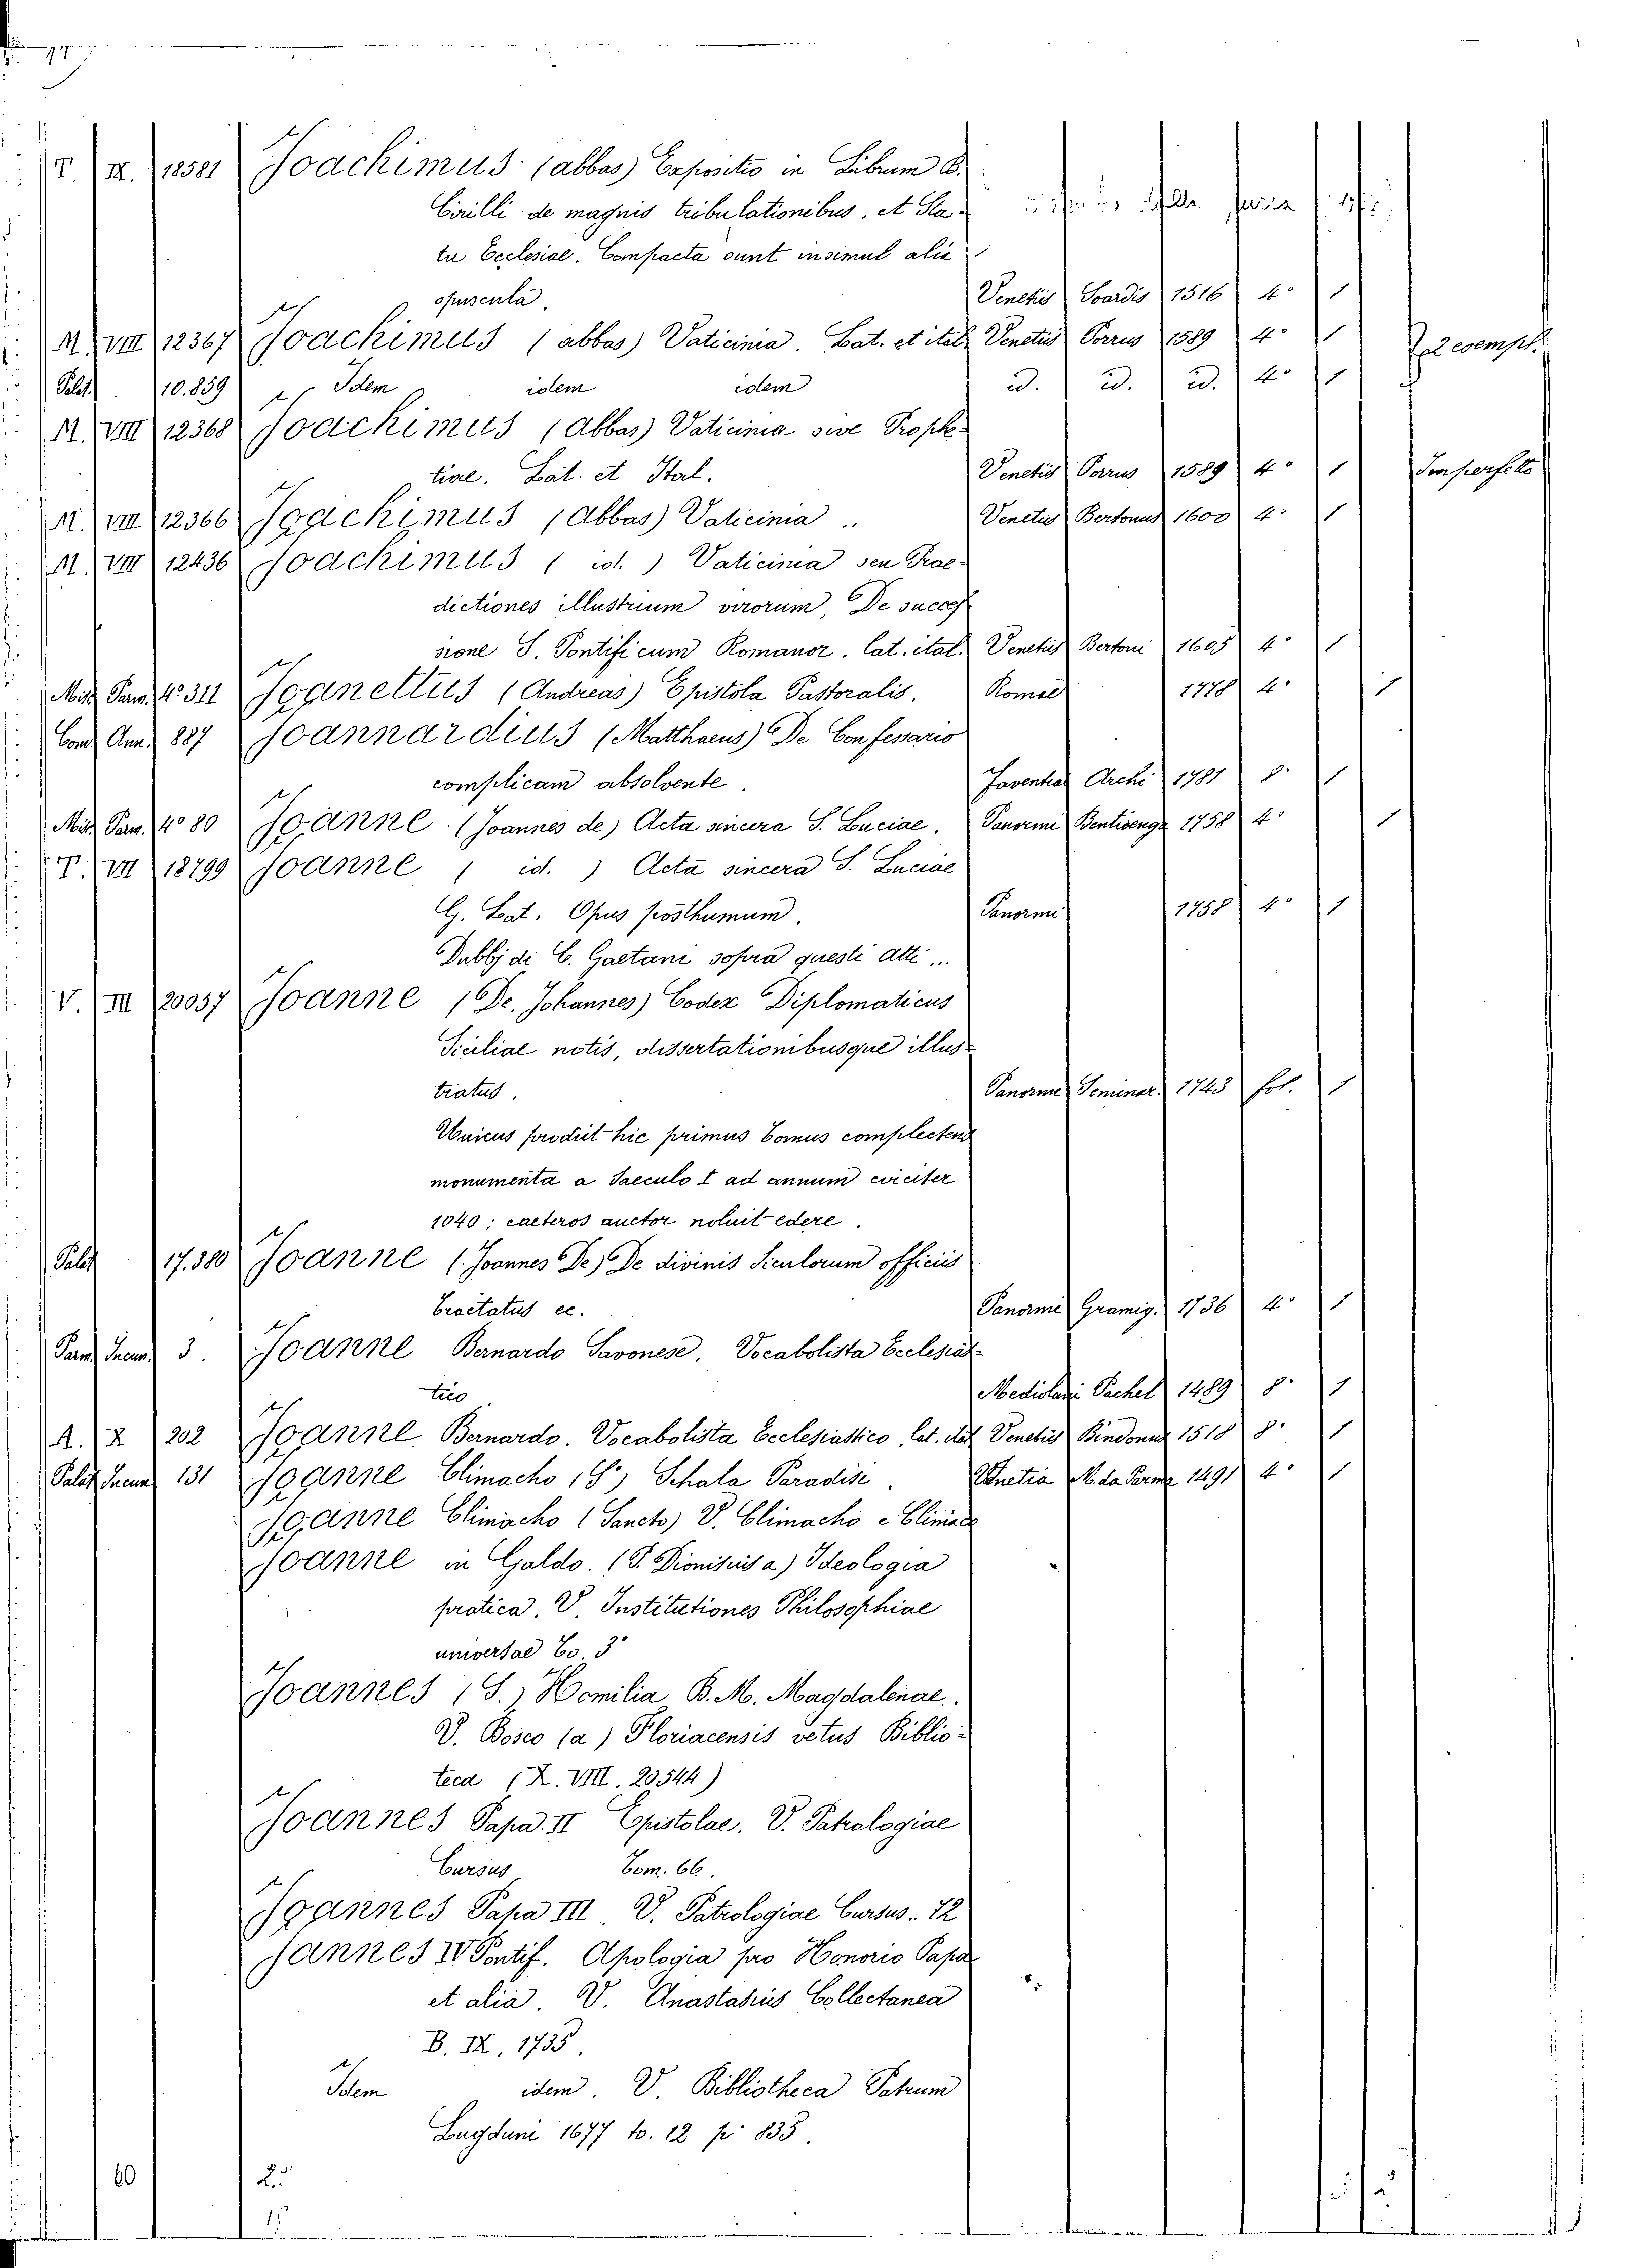 T. IX. 18581 Joachimus (abbas) Expositio in Librum B.
Cirilli de magnis tribulationibus, et Sta-
tu Ecclesiae. Compacta sunt insimul alia
opuscula. Venetiis Soardis 1516 4° 1
M. VIII 12367 Joachimus (abbas) Vaticinia. Lat. et ital. Venetiis Porrus 1589 4° 1 2 esempl.
Palat. 10.859 Idem idem idem id. id. id. 4° 1
M. VIII 12368 Joachimus (Abbas) Vaticinia sive Prophe-
tiae. Lat. et Ital. Venetiis Porrus 1589 4° 1 Imperfetto
M. VIII 12366 Joachimus (Abbas) Vaticinia .. Venetiis Bertonus 1600 4° 1
M. VIII 12436 Joachimus ( id. ) Vaticinia seu Prae-
dictiones illustrium virorum, De succes-
sione S. Pontificum Romanor. Lat. ital. Venetiis Bertoni 1605 4° 1
Misc. Parm. 4° 311 Joannettus (Andreas) Epistola Pastoralis. Romae 1778 4° 1
Com. Ann. 887 Joannardius (Matthaeus) De Confessario
complicam absolvente. Faventiae Archi 1781 8° 1
Misc. Parm. 4° 80 Joanne (Joannes de) Acta sincera S. Luciae. Panormi Bentivenga 1758 4° 1
T. VII 18799 Joanne ( id. ) Acta sincera S. Luciae
G. Lat. Opus posthumum. Panormi 1758 4° 1
Dubbj di C. Gaetani sopra questi atti ...
V. III 20057 Joanne (De. Johannes) Codex Diplomaticus
Siciliae notis, dissertationibusque illus-
tratus. Panormi Seminar. 1743 fol. 1
Unicus prodiit hic primus tomus complectens
monumenta a saeculo I ad annum circiter
1040; caeteros auctor noluit edere.
Palat. 17.380 Joanne (Joannes De) De divinis Siculorum officiis
tractatus ec. Panormi Gramig. 1736 4° 1
Parm. Incun. 3. Joanne Bernardo Savonese. Vocabolista Ecclesias-
tico Mediolani Pachel 1489 8° 1
A. X 202 Joanne Bernardo. Vocabolista Ecclesiastico, lat. ital. Venetiis Bindonus 1518 8° 1
Palat. Incun. 131 Joanne Climacho (S.) Schala Paradisi. Venetia M. da Parma 1491 4° 1
Joanne Climacho (Sancto) V. Climacho e Climaco
Joanne in Galdo. (S. Dionisius a) Ideologia
pratica. V. Institutiones Philosophiae
universae To. 3°
Joannes (S.) Homilia B. M. Magdalenae.
V. Bosco (a) Floriacensis vetus Biblio-
teca (X. VIII. 20544)
Joannes Papa II Epistolae. V. Patrologiae
Cursus Tom. 66.
Joannes Papa III V. Patrologiae Cursus. 72
Joannes IV Pontif. Apologia pro Honorio Papa
et alia. V. Anastasius Collectanea
B. IX. 1735.
Idem idem. V. Bibliotheca Patrum
Lugduni 1677 to. 12 p. 835.
60 25
15